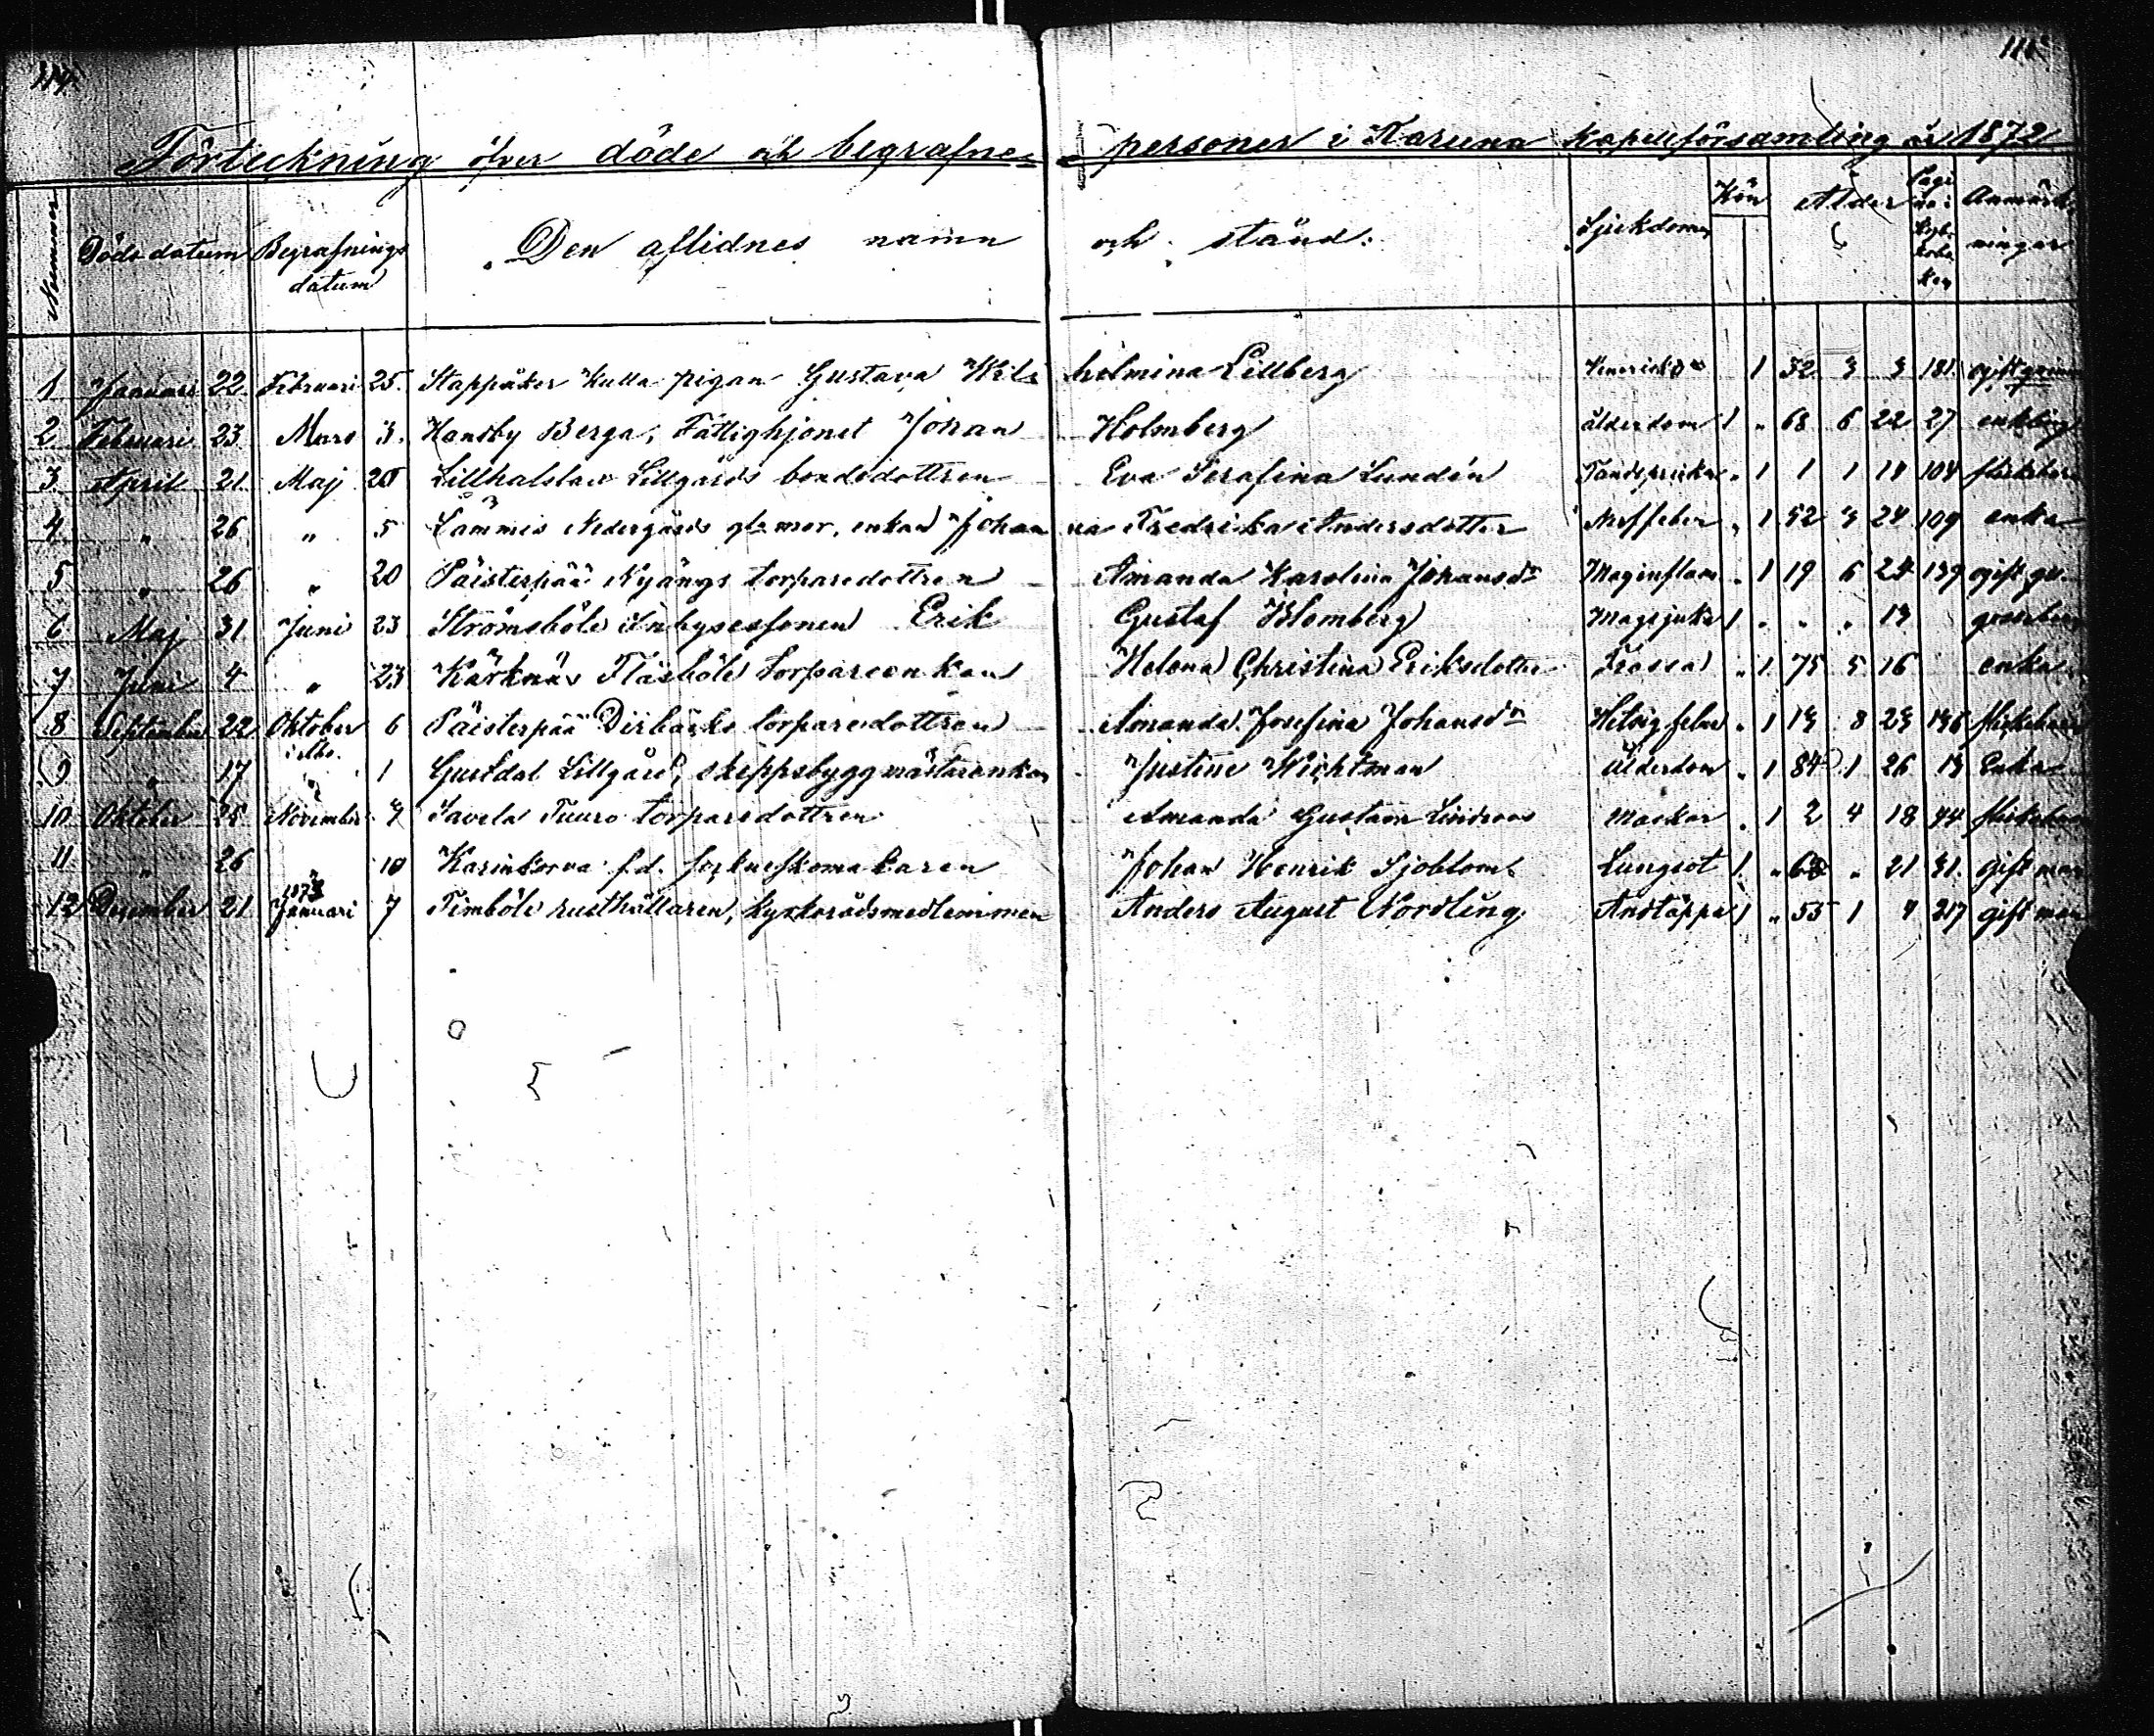 114.
Förteckning öfver döde och begrafne personer i Karuna kapellförsamling år 1872
Nummer Döds datum Begrafnings datum Den aflidnes namn och stånd: Sjukdom Kön Ålder Anmärkningar
1 Januari 22 Februari 25. Stappåker Kulla pigan Gustava Wilhelmina Lillberg 1 52 3 3 181 ogift qvinna
2 Februari 23 Mars 3. Handby Berga, Fattighjonet Johan Holmberg ålderdom 1 " 68 6 22 27 enkling
3. April 21. Maj 20 Lillhalslax Lillgårds bondedottren Eva Serafina Lundén " 1 1 1 14 104 flickebarn
4. " 26 " 5 Lämmis Nedergårds enkan Johanna Fredrika Andersdotter " 1 52 3 24 109 enka
5 " 26 " 20 Päisterpää Nyängs torparedottren Amanda Karolina Johansdr Maginflam " 1 19 6 24 139 ogift qv.
6 Maj 31 Juni 23 Strömsböle Inhysessonen Erik Gustaf Blomberg Magsjuka 1 " " " 13 gossebarn
7 Juni 4 " 23 Kärknäs Fläsböle torpareenkan Helena Christina Eriksdotter Frossa " 1 75 5 16 enka
8 September 22 Oktober 6 Päisterpää Dirbäcks torparedottren Amanda Josefina Johansdr Hetsig feber " 1 13 8 23 136 flickebarn
9 " 17 " 1 Gustdal Lillgård, skeppsbyggmästarenkan Justine Wichtman Ålderdom " 1 84 1 26 13 Enka
10 Oktober 25 November 7 Savela Tuuro torparedottren Amanda Gustava Lindroos Maskar " 1 2 4 18 44 flickebarn
11 " 26 " 10 Karinkorva f.d. sockneskomakaren Johan Henrik Sjöblom Lungsot 1. " 68 " 21 31. gift man
12 December 21 1873 Januari 7 Timböle rusthållaren, kyrkorådsmedlemmen Anders August Nordling Andtäppa 1 " 55 1 4 217 gift man